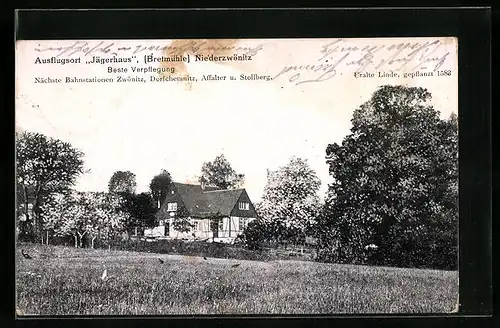 Ausflugsort „Jägerhaus“, [Bretmühle] Niederzwönitz
Beste Verpflegung
Nächste Bahnstationen Zwönitz, Dorfchemnitz, Affalter u. Stollberg.
Uralte Linde, gepflanzt 1583